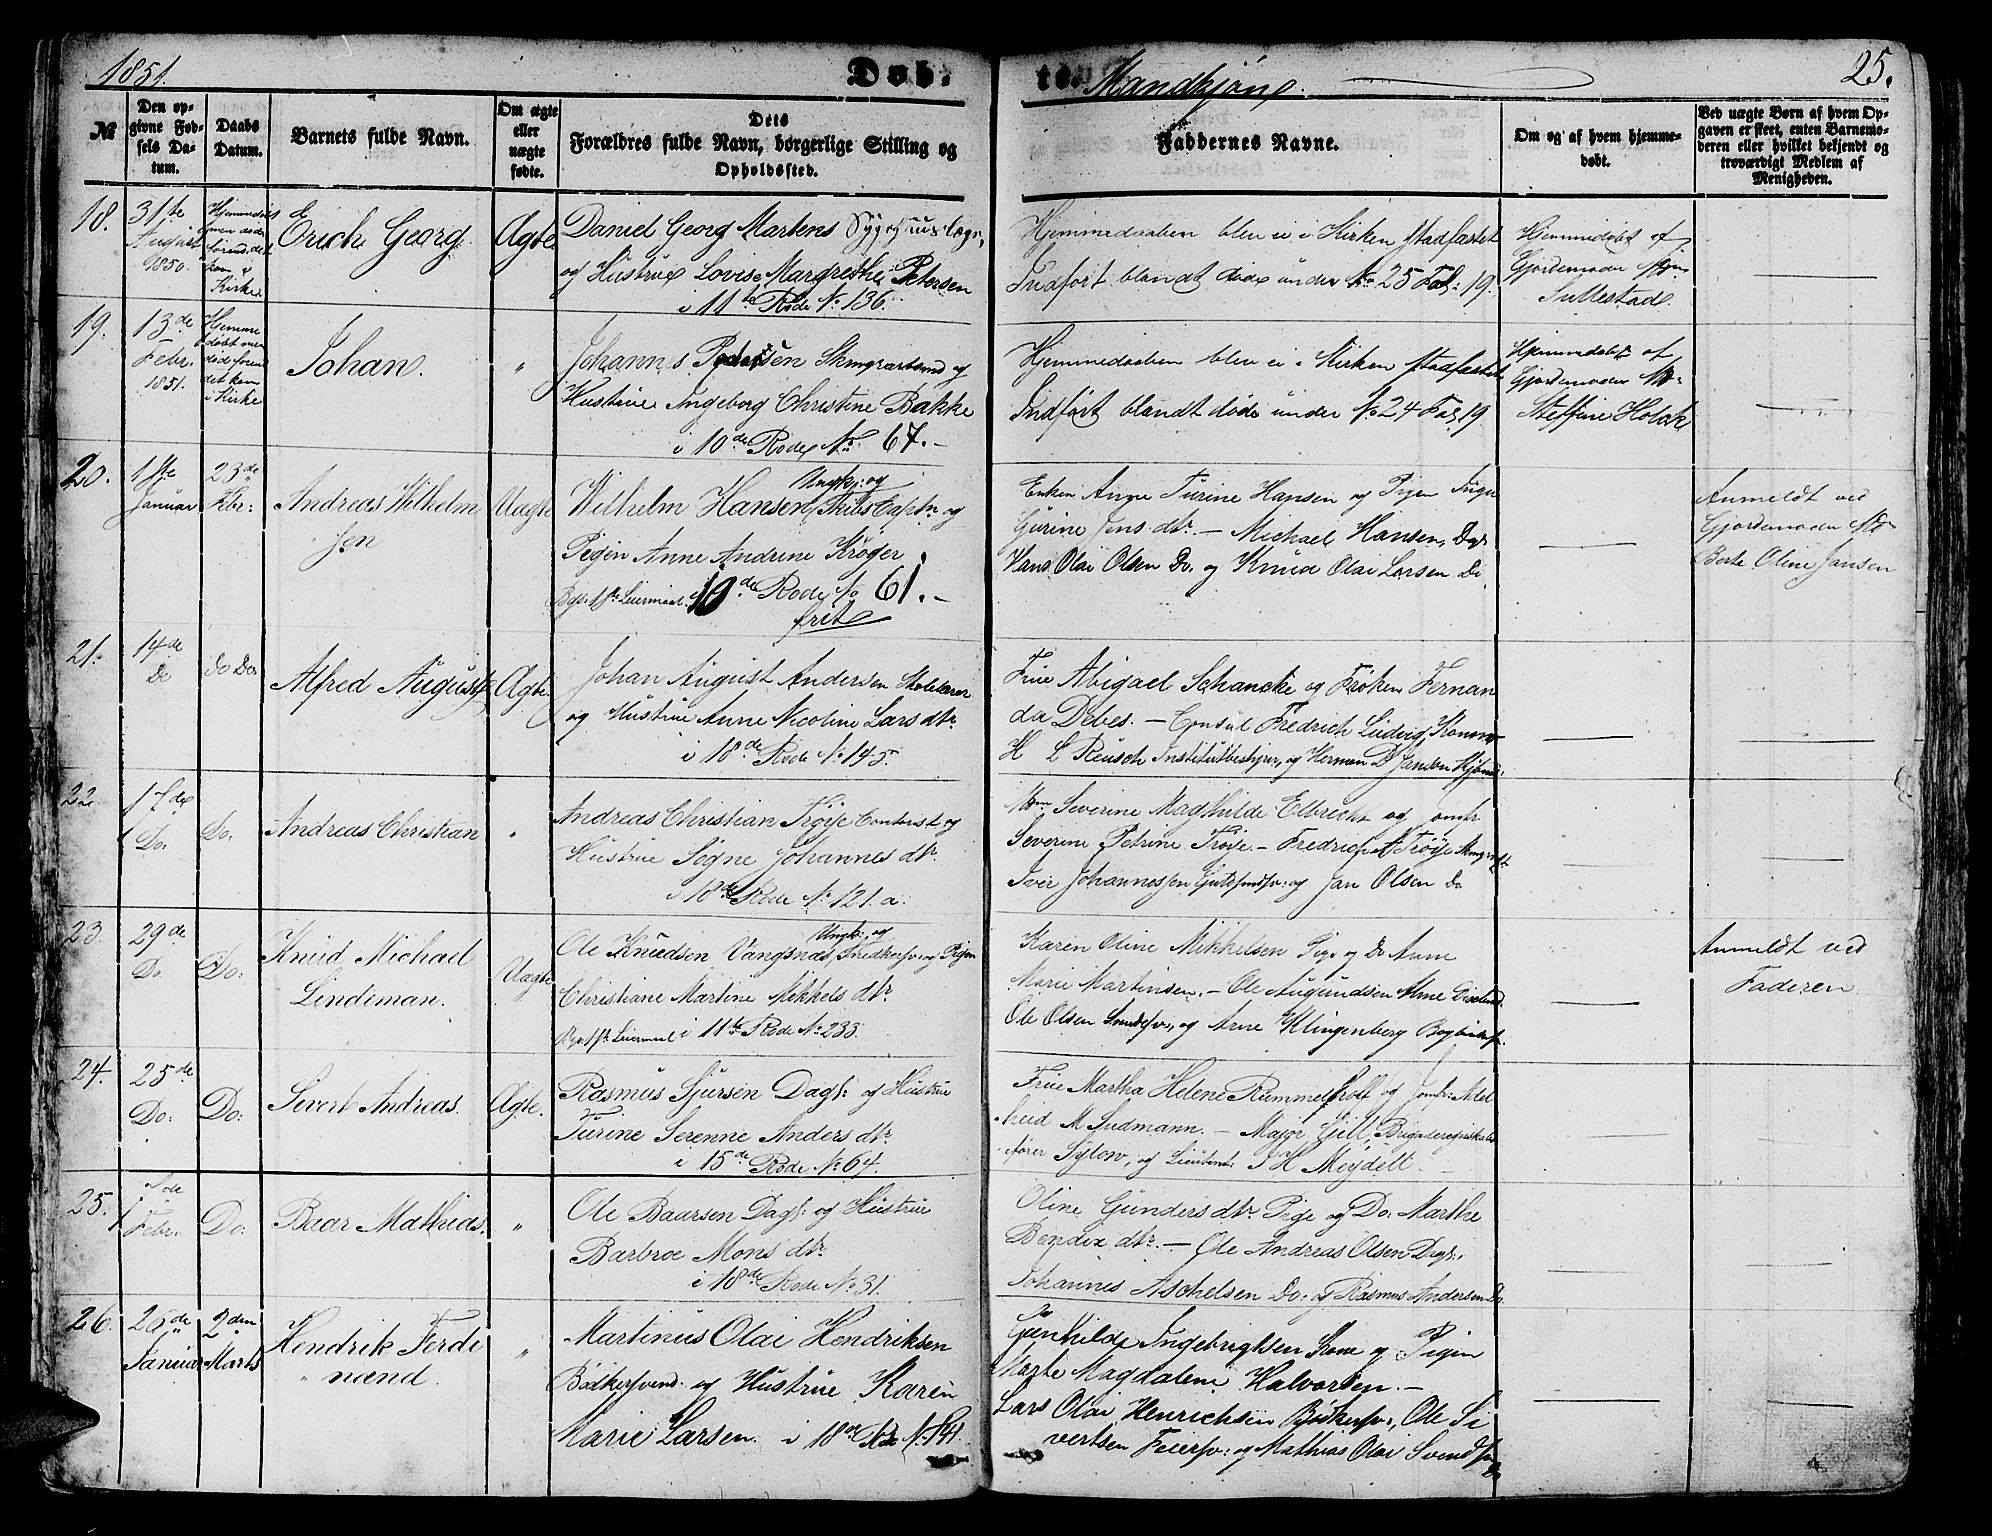 1851.
Døb-
te. Mandkjøn.
25.
No
Den op-
givne Fød-
sels Da-
tum.
Daabs
Datum.
Barnets fulde Navn.
Om ægte
eller
uægte
fødte.
Dets
Forældres fulde Navn, borgerlige Stilling og
Opholdssted.
Faddernes Navne.
Om og af hvem hjemme-
døbt.
Ved uægte Børn af hvem Op-
gaven er skeet, enten Barnemo-
deren eller hvilket bekjendt og
troværdigt Medlem af
Menigheden.
18.
31te
August
1850.
Hjemmedøbt
men døde
forend det
kom i
Kirke.
Erich Georg.
Ægte
Daniel Georg Martens Sygehuuslæge,
og Hustrue Lovise Margrethe Petersen
i 11te Rode No 136.
Hjemmedaaben blev ei i Kirken stadfæstet
Indført blandt døde under No 25 Fol: 19.
Hjemmedøbt af
Gjordemoder
Sullestad
19.
13de
Febr.
1851.
Hjemme
døbt men
døde forend
det kom
i Kirke
Johan.
"
Johannes Pedersen og
Hustrue Ingeborg Christine Bakke
i 10de Rode No 67.
Hjemmedaaben blev ei i Kirken stadfæstet
Indført blandt døde under No 24 Fol. 19
Hjemmedøbt af
Gjordemoder
Steffine Holck
20.
1ste
Januar
23de
Febr:
Andreas Wilhelm
sen
Uægte
Wilhelm Hansen Ungk: og Skibs Captn og
Pigen Anne Andrine Krøger
Bgs. 1ste Leiermaal. i 10de Rode No 61.
frit
Enken Anne Turine Hansen og Pigen
Gurine Jensdtr. - Michael Hansen,
Hans Olai Olsen Do. og Knud Olai Larsen Do
Anmeldt ved
Gjordemoder
Berte Oline Jansen
21.
14de
Do
Do Do.
Alfred August
Ægte.
Johan August Andersen Skolelærer
og Hustrue Anne Nicoline Larsdtr.
i 18de Rode No 145.
Frue Abigael Schancke og Frøken Fernan
da Debes. - Consul Fredrich Ludvig Konow
H L Reusch Institutbestyrer, og Herman D Janson Kjøbmd:
22.
17de
Do.
Do.
Andreas Christian
"
Andreas Christian Trøije Contorist og
Hustrue Signe Johannesdtr.
i 18de Rode No 121. a.
Mm Severine Magthilde Elbrecht og Jomfr
Severine Petrine Trøije - Fredrich A Trøije
Iver Johannessen og Jan Olsen Do
23.
29de
Do.
Do:
Knud Michael
Lindeman.
Uægte
Ole Knudsen Vangsnæs Ungk: og Snedkersv: og Pigen
Christiane Martine Mikkelsdtr.
Bgs. 1ste Leiermaal i 11te Rode No 233.
Karen Oline Mikkelsen Pige og Do Anne
Marie Martinsen. - Ole Augundsen
Ole Olsen og Arne Klingenberg Bogbindersv.
Anmeldt ved
Faderen
24.
25de
Do:
Do:
Severt Andreas.
Ægte.
Rasmus Sjursen Dagk: og Hustrue
Turine Serenne Andersdtr.
i 15de Rode No 64.
Frue Martha Helene Rummelhoff og Jomfr: Adel
heid M Sudmann. - Major Gill, Brigadereqviskab
fører Sylow, og Lieutent: S H Meydell.
25.
1ste
Febr.
Do:
Baar Mathias.
"
Ole Baarsen Dagk: og Hustrue
Barbroe Monsdtr.
i 18de Rode No 31.
Oline Gundersdtr. Pige og Do: Marthe
Bendixdtr. - Ole Andreas Olsen Dagk:
Johannes Aschelsen Do: og Rasmus Andersen Do
26.
26de
Januar
2den
Marts
Hendrik Ferdi
nand.
"
Martinus Olai Hendriksen
Bødkersvend. og Hustrue Karen
Marie Larsen. i 18de Rde No 141.
Gunhilde Ingebrigtsen Kone og Pigen
Marte Magdalene Halvorsen. -
Lars Olai Henrichsen Bødkersv., Ole Si
vertsen Feiersv: og Mathias Olai Svendsen
Do